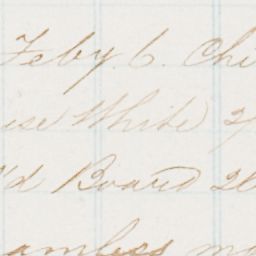 Feby. 6. Chi
use White 2/
'd Board 20
ambess mo